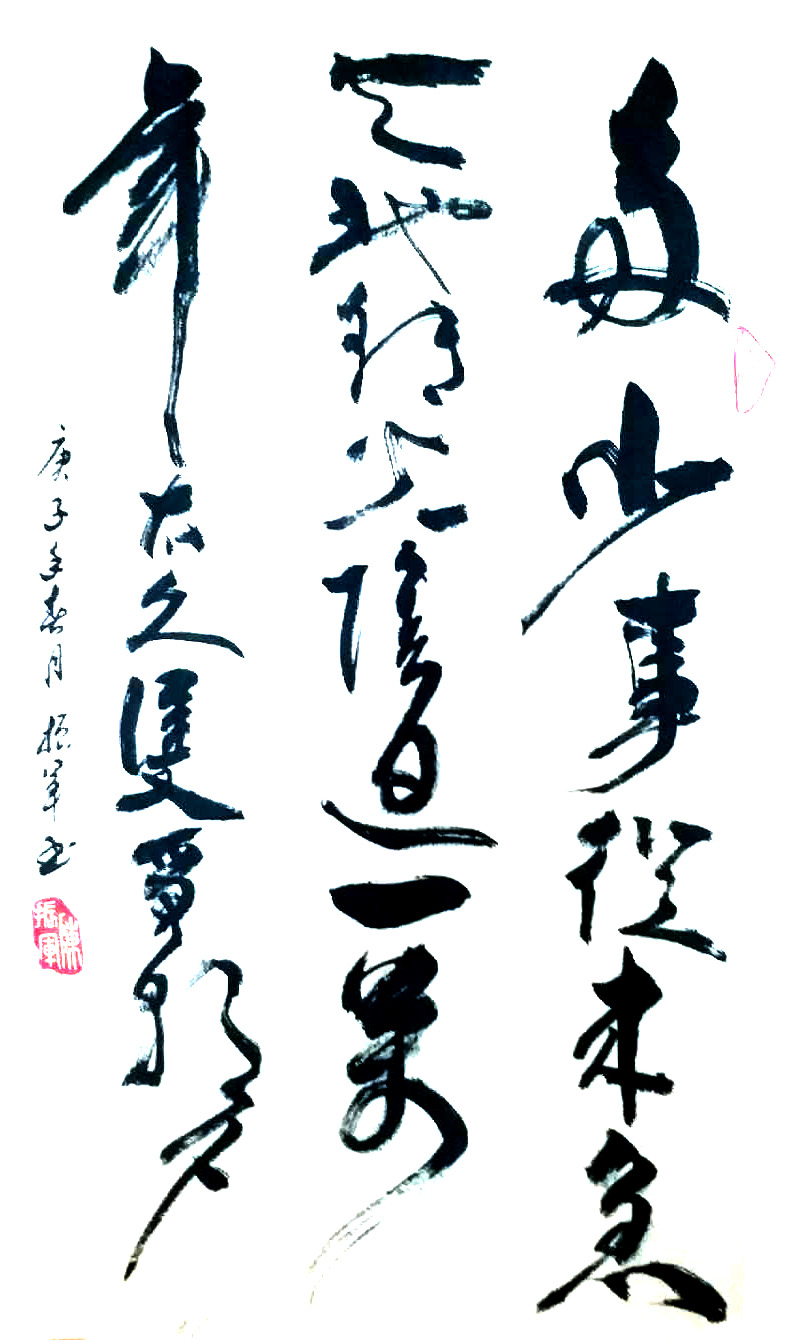 多少事從来急
天地轉光陰迫一萬
年太久隻爭朝夕
庚子年春月振軍书
陳振軍